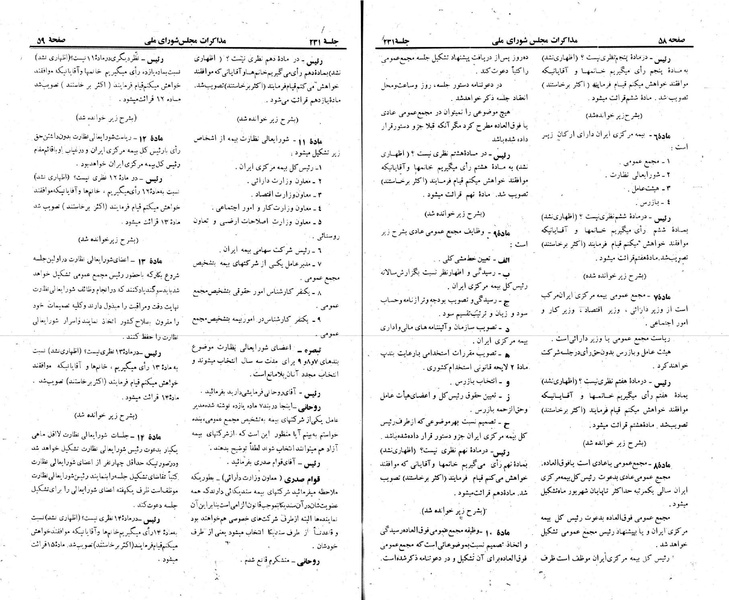 صفحه ۵۸
مذاکرات مجلس شورای ملی
جلسه ۲۳۱
رئیس - در مادهٔ پنجم نظری نیست ؟ (اظهاری نشد)
به مادهٔ پنجم رأی میگیریم خانمها و آقایانیکه
موافقند خواهش میکنم قیام فرمایند (اکثر برخاستند)
تصویب شد . مادهٔ ششم قرائت میشود .
(بشرح زیر خوانده شد)
مادهٔ ۶ - بیمه مرکزی ایران دارای ارکان زیر
است :
۱ - مجمع عمومی .
۲ - شورایعالی نظارت .
۳ - هیئت عامل .
۴ - بازرس .
رئیس - در مادهٔ ششم نظری نیست ؟ (اظهاری نشد)
بمادهٔ ششم رأی میگیریم خانمها و آقایانیکه
موافقند خواهش میکنم قیام فرمایند (اکثر برخاستند)
تصویب شد. مادهٔ هفتم قرائت میشود .
(بشرح زیر خوانده شد)
مادهٔ ۷ - مجمع عمومی بیمه مرکزی ایران مرکب
است از وزیر دارائی ، وزیر اقتصاد ، وزیر کار و
امور اجتماعی .
ریاست مجمع عمومی با وزیر دارائی است .
هیئت عامل و بازرس بدون حق رأی در جلسات شرکت
خواهند کرد .
رئیس - در مادهٔ هفتم نظری نیست؟ (اظهاری نشد)
بمادهٔ هفتم رأی میگیریم خانمها و آقایانیکه
موافقند خواهش میکنم قیام فرمایند (اکثر برخاستند)
تصویب شد. مادهٔ هشتم قرائت میشود .
(بشرح زیر خوانده شد)
مادهٔ ۸ - مجمع عمومی یا عادی است یا فوق‌العاده.
مجمع عمومی عادی بدعوت رئیس کل بیمه مرکزی
ایران سالی یکمرتبه حداکثر تا پایان شهریور ماه تشکیل
میشود .
مجمع عمومی فوق العاده بدعوت رئیس کل بیمه
مرکزی ایران و یا به پیشنهاد بازرس تشکیل خواهد شد .
رئیس کل بیمه مرکزی ایران موظف است ظرف
ده روز پس از دریافت پیشنهاد تشکیل جلسه مجمع عمومی
را کتباً دعوت کند .
در دعوتنامه دستور جلسه، روز و ساعت و محل
انعقاد جلسه ذکر خواهد شد.
هیچ موضوعی را نمیتوان در مجمع عمومی عادی
یا فوق العاده مطرح کرد مگر آنکه قبلا جزو دستور قرار
داده شده باشد
رئیس - در مادهٔ هشتم نظری نیست ؟ (اظهاری
نشد) به مادهٔ هشتم رأی میگیریم خانمها و آقایانیکه
موافقند خواهش میکنم قیام فرمایند (اکثر برخاستند)
تصویب شد. مادهٔ نهم قرائت میشود .
(بشرح زیر خوانده شد)
مادهٔ ۹ - وظایف مجمع عمومی عادی بشرح زیر
است :
الف - تعیین خط مشی کلی .
ب - رسیدگی و اظهار نظر نسبت بگزارش سالانه
رئیس کل بیمه مرکزی ایران .
ج - رسیدگی و تصویب بودجه و ترازنامه و حساب
سود و زیان و ترتیب تقسیم سود .
د - تصویب سازمان و آئیننامه‌های مالی و اداری
بیمه مرکزی ایران .
ه - تصویب مقررات استخدامی با رعایت بند پ
مادهٔ ۲ لایحه قانونی استخدام کشوری .
و - انتخاب بازرس .
ز - تعیین حقوق رئیس کل و اعضای هیأت عامل
و حق الزحمه بازرس .
ح - تصمیم نسبت بهر موضوعی که از طرف رئیس
کل بیمه مرکزی ایران جزو دستور قرار داده شده باشد.
رئیس - در مادهٔ نهم نظری نیست؟ (اظهاری نشد)
بمادهٔ نهم رأی می‌گیریم. خانمها و آقایانی که موافقند
خواهش می‌کنم قیام فرمایند (اکثر برخاستند) تصویب
شد. مادهٔ دهم قرائت میشود .
(بشرح زیر خوانده شد)
مادهٔ ۱۰ - وظیفه مجمع عمومی فوق‌العاده رسیدگی
و اتخاذ تصمیم نسبت بموضوعاتی است که مجمع عمومی
فوق العاده برای آن تشکیل و در دعوتنامه ذکر شده است.
جلسه ۲۳۱
مذاکرات مجلس شورای ملی
صفحه ۵۹
رئیس - در مادهٔ دهم نظری نیست ؟ (اظهاری
نشد) بمادهٔ دهم رأی می‌گیریم خانمها و آقایانی که موافقند
خواهش می‌کنم قیام فرمایند (اکثر برخاستند) تصویب شد.
مادهٔ یازدهم قرائت می‌شود .
(بشرح زیر خوانده شد)
مادهٔ ۱۱ - شورایعالی نظارت بیمه از اشخاص
زیر تشکیل میشود :
۱ - رئیس کل بیمه مرکزی ایران .
۲ - معاون وزارت دارائی .
۳ - معاون وزارت اقتصاد .
۴ - معاون وزارت کار و امور اجتماعی .
۵ - معاون وزارت اصلاحات ارضی و تعاون
روستائی .
۶ - رئیس شرکت سهامی بیمه ایران .
۷ - مدیر عامل یکی از شرکتهای بیمه بتشخیص
مجمع عمومی .
۸ - یکنفر کارشناس امور حقوقی بتشخیص مجمع
عمومی .
۹ - یکنفر کارشناس در امور بیمه بتشخیص مجمع
عمومی .
تبصره - اعضای شورایعالی نظارت موضوع
بندهای ۷ و ۸ و ۹ برای مدت سه سال انتخاب میشوند و
انتخاب مجدد آنان بلامانع است .
رئیس - آقای روحانی فرمایشی دارید بفرمائید .
روحانی - اینجا در بند ۷ ماده یازده نوشته شده مدیر
عامل یکی از شرکتهای بیمه به تشخیص مجمع عمومی، بنده
خواستم بپرسم آیا منظور این است که از شرکتهای بیمه
آزاد هم میتوانند انتخاب شوند لطفاً توضیح بدهند .
رئیس - آقای قوام صدری بفرمائید .
قوام صدری (معاون وزارت دارائی) - بطوریکه
ملاحظه میفرمائید شرکتهای بیمه سندیکائی دارند که همه
نماینده‌ها البته از طرف شرکت‌های خصوصی هم خواهند بود
و از طرف سندیکا انتخاب میشود یعنی از طرف
خودشان .
روحانی - متشکرم قانع شدم .
رئیس - نظر دیگری در مادهٔ ۱۱ نیست؟ (اظهاری نشد)
نسبت بماده یازده رأی میگیریم خانمها و آقایانیکه موافقند
خواهش میکنم قیام فرمایند (اکثر برخاستند) تصویب شد .
ماده ۱۲ قرائت میشود .
(بشرح زیر خوانده شد)
مادهٔ ۱۲ - ریاست شورایعالی نظارت بدون داشتن حق
رأی با رئیس کل بیمه مرکزی ایران و در غیاب او با قائم مقام
رئیس کل بیمه مرکزی ایران خواهد بود.
رئیس - در مادهٔ ۱۲ نظری نیست؟ (اظهاری نشد)
نسبت به مادهٔ ۱۲ رأی میگیریم ، خانم‌ها و آقایانیکه موافقند
خواهش میکنم قیام فرمایند (اکثر برخاستند) تصویب شد
مادهٔ ۱۳ قرائت میشود .
(بشرح زیر خوانده شد)
مادهٔ ۱۳ - اعضای شورایعالی نظارت در اولین جلسه
شروع بکار که با حضور رئیس مجمع عمومی تشکیل خواهد
شد باید سوگند یاد کنند که در انجام وظائف شورایعالی نظارت
نهایت دقت و مراقبت را مبذول دارند و کلیه تصمیمات خود
را مقرون بصلاح کشور اتخاذ نمایند و اسرار شورایعالی
نظارت را حفظ کنند .
رئیس - در مادهٔ ۱۳ نظری نیست؟ (اظهاری نشد)
به مادهٔ ۱۳ رأی میگیریم ، خانم‌ها و آقایانیکه موافقند
خواهش میکنم قیام فرمایند (اکثر برخاستند) تصویب شد .
مادهٔ ۱۴ قرائت میشود .
(بشرح زیر خوانده شد)
مادهٔ ۱۴ - جلسات شورایعالی نظارت لااقل ماهی
یکبار بدعوت رئیس شورایعالی نظارت تشکیل خواهد شد
و در صورتیکه حداقل چهار نفر از اعضای شورایعالی نظارت
کتباً تقاضای تشکیل جلسه را بنمایند رئیس شورایعالی نظارت
موظف است ظرف یکهفته اعضای شورایعالی را برای تشکیل
جلسه دعوت کند .
خواهش میکنم قیام فرمایند (اکثر برخاستند) تصویب شد. مادهٔ ۱۵ قرائت
میشود .